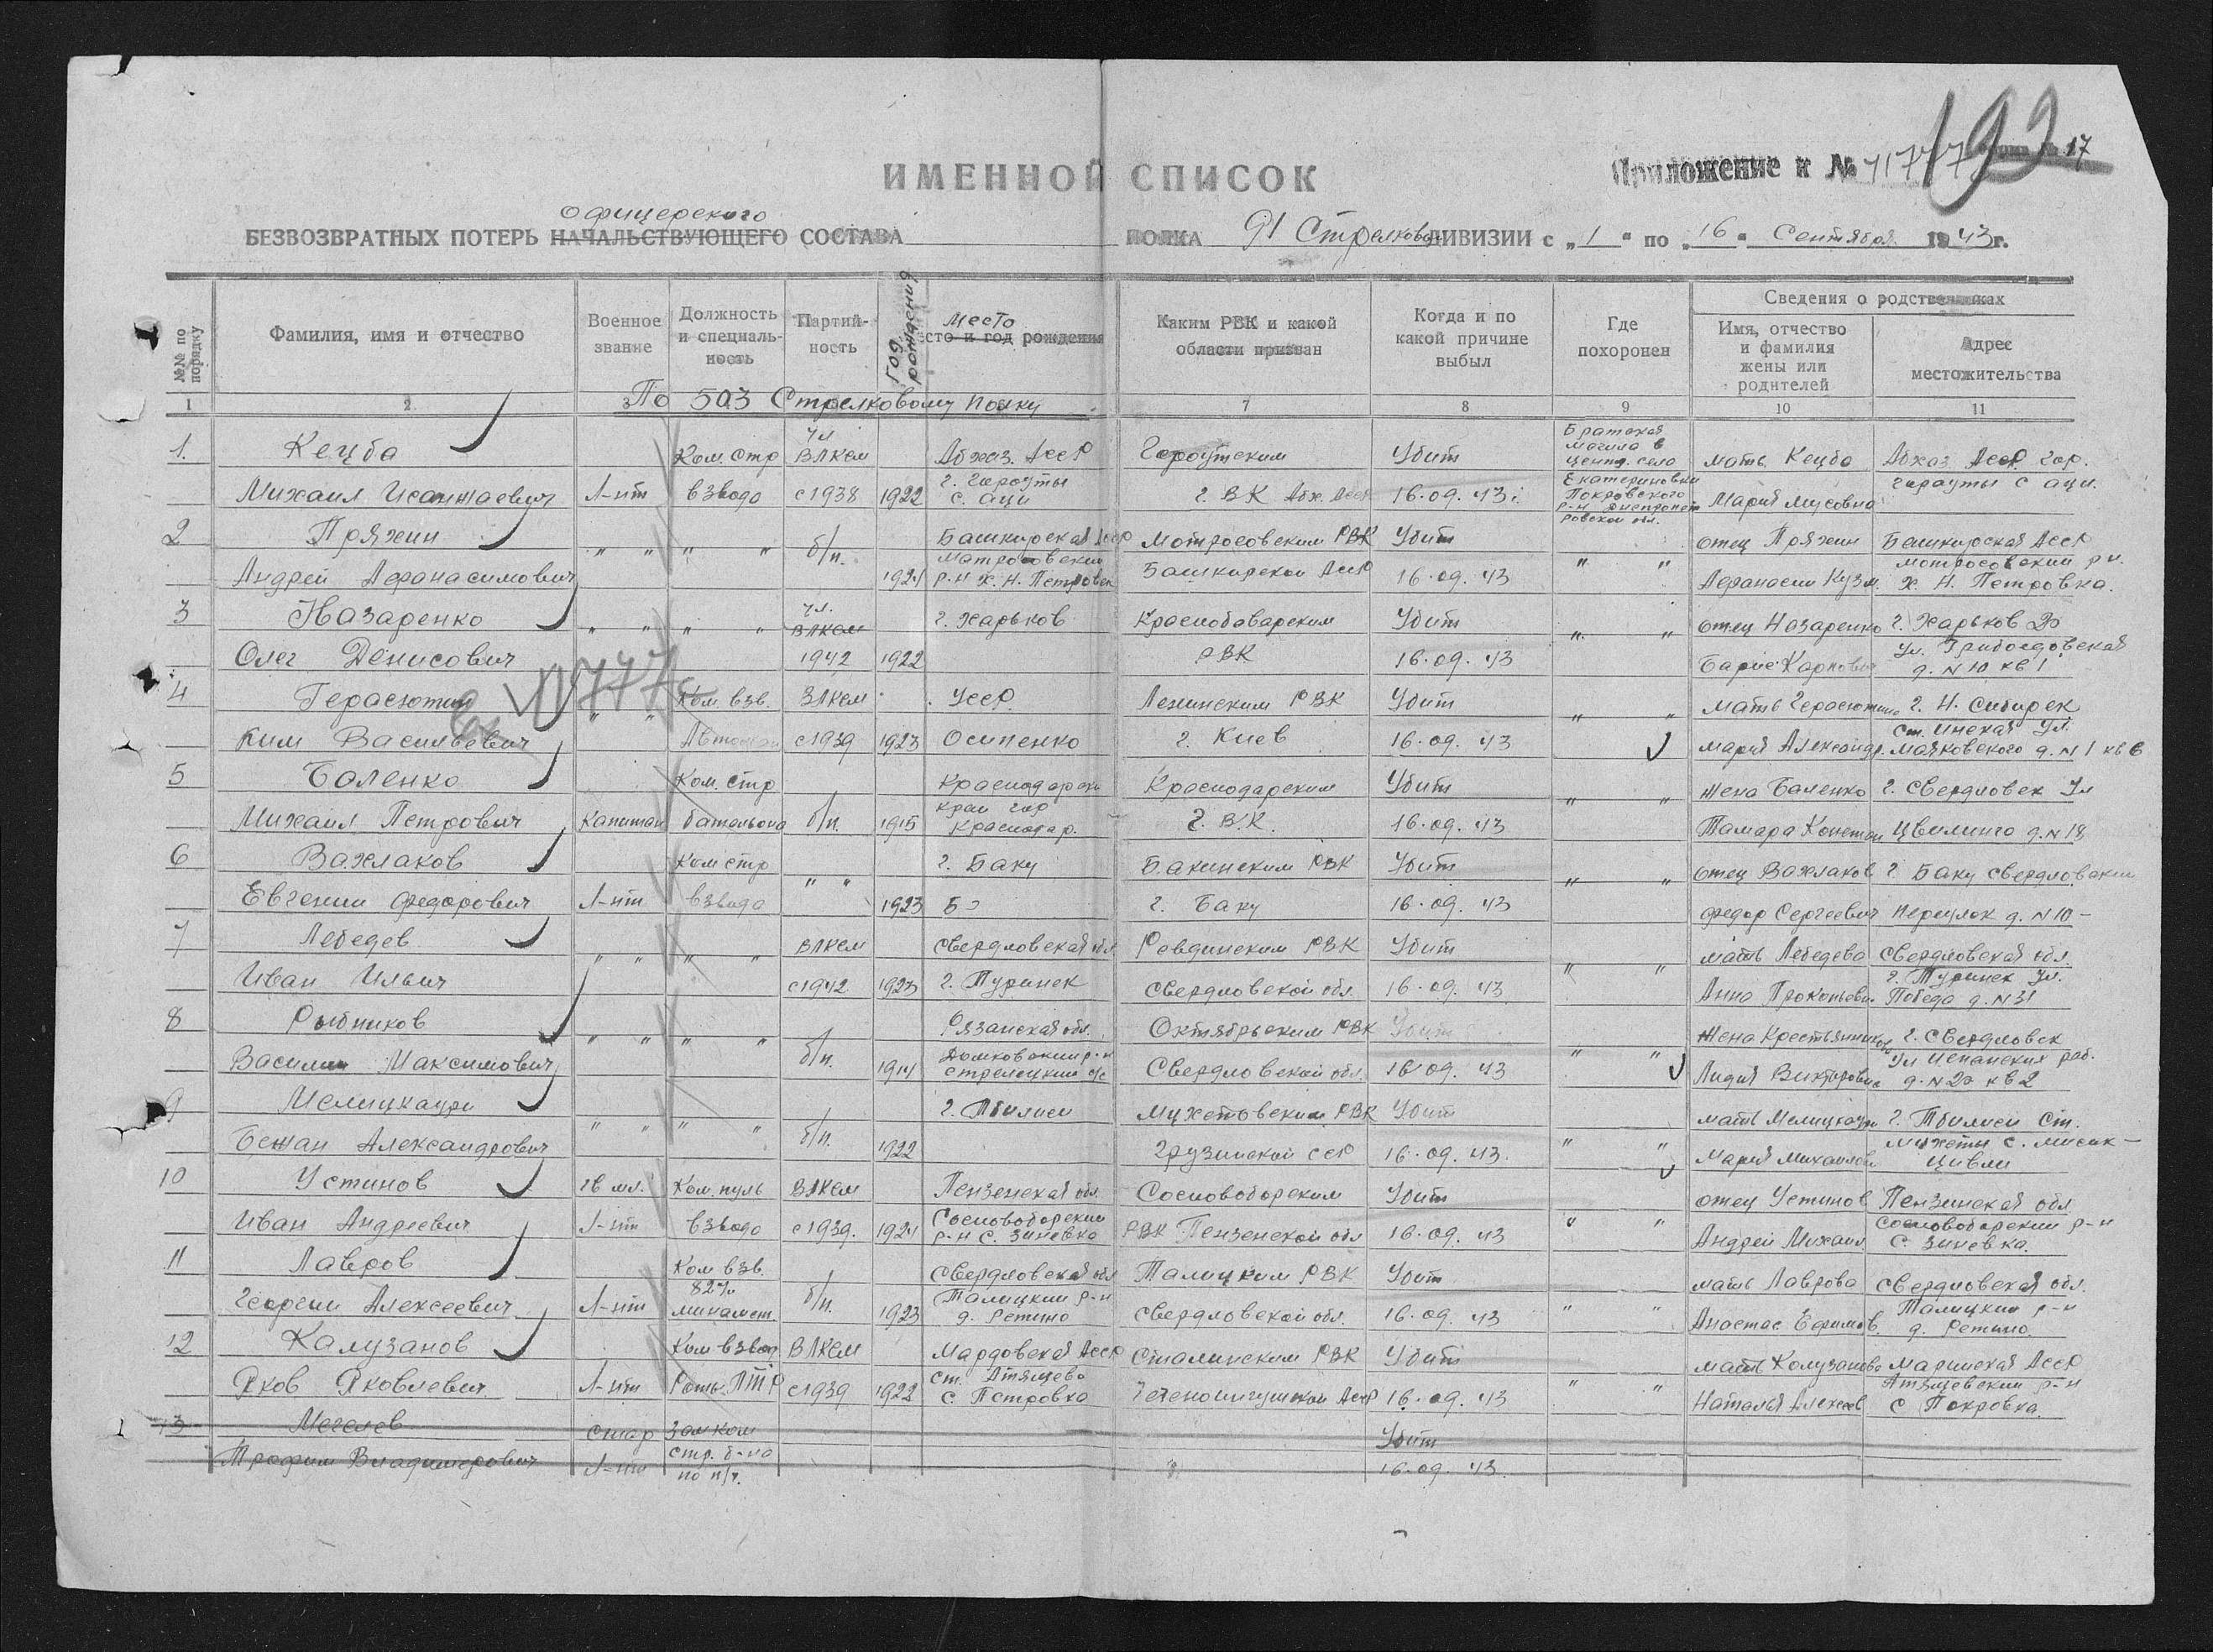 193
ИМЕННОЙ СПИСОК
Приложение к №
17
офицерского
БЕЗВОЗВРАТНЫХ ПОТЕРЬ НАЧАЛЬСТВУЮЩЕГО СОСТАВА ПОЛКА 91 Стрелковой ДИВИЗИИ с „1" по „16" Сентября 1943 г.
№№ по порядку
Фамилия, имя и отчество
Военное звание
Должность и специальность
Партийность
Год рождения
Место
сто и год рождения
Каким РВК и какой области призван
Когда и по какой причине выбыл
Где похоронен
Сведения о родственниках
Имя, отчество и фамилия жены или родителей
Адрес местожительства
1 2 3 7 8 9 10 11
По 503 Стрелковому полку
1. Кецба Ком. стр чл ВЛКСМ Абхаз. АССР Убит Братская могила в центр. село Екатериновки Покровского р-н Днепропетровской обл. мать Кецба Абхаз АССР гор.
Михаил Л-нт взвода с 1938 1922 с. Аци Г. ВК Абх. АССР 16.09.43 г. Мария с Аци
2 Пряхин " " " " б/п. Башкирская АССР Мотросовским РВК Убит отец Пряхин Башкирская АССР
Андрей Афанасимович 1924 Матросовский р-н х. Н. Петровка Башкирской АССР 16.09.43 " " Афанасии Кузм. мотросовский р-н. х. Н. Петровка.
3 Назаренко " " " " чл. ВЛКСМ г. Харьков Краснобаварским Убит " " отец Назаренко г. Харьков
Олег Денисович 1942 1922 РВК 16.09.43 Карпович Ул. Грибоедовская д. N 10 кв 1
4 Герасютин " " Ком. взв. ВЛКСМ УССР. Ленинским РВК Убит " " мать Герасютина г. Н. Сибирск
Ким Васильевич с 1939 1923 Осипенко г. Киев 16.09.43 мария Александр. ст. Инская ул. Маяковского д. N 1 кв 6
5 Баленко Ком. стр Краснодарский Краснодарским Убит " " жена Баленко г. Свердловск Ул
Михаил Петрович Капитан батальона б/п. 1915 край гор Краснодар. Г.В.К. 16.09.43 Тамара Констан Цвилинго д. N 18
6 Вахлаков Ком стр " " г. Баку Бакинским РВК Убит " " отец Вахлаков г. Баку свердловский
Евгении Федорович Л-нт взвода 1923 г. Баку 16.09.43 Федор Сергеевич переулок д. N 10 -
7 Лебедев " " " " ВЛКСМ Свердловская обл Ревдинским РВК Убит " " мать Лебедева Свердловская обл.
Иван Ильич с 1942 1923 г. Туринск Свердловской обл. 16.09.43 Анна Прокопьевн. г. Туринск ул. Победа д. N 31
8 Рыбников " " " " б/п. Рязанская обл. Октябрьским РВК Убит жена г. Свердловск
Василии Максимович 1914 стрелецкий с/с Свердловской обл. 16.09.43 " " Лидия Викторовна Ул Испанских раб. кв 2
9 Мелицкаури " " " " б/п. г. Тбилиси РВК Убит мать Мелицкаури г. Тбилиси ст.
Бежан Александрович 1922 Грузинской ССР 16.09.43. " " Мария Михаиловн мцхеты с.
10 Устинов гв мл. Ком. пуль ВЛКСМ Пензенская обл. Сосновоборским Убит отец Устинов Пензинская обл
Иван Андреевич Л-нт взвода с 1939. 1924 Сосновоборский р-н с. Зиневка РВК Пензенской обл 16.09.43 " " Андрей Михаил. Сосновоборский р-н с. Зиневка.
11 Лавров Ком взв. б/п. Свердловская обл Талицким РВК Убит мать Лаврова Свердловская обл.
Георгии Алексеевич Л-нт 82 м/м минамет. 1923 Талицкии р-н д. Ретино Свердловской обл. 16.09.43 " " Анастас Ефимов. Талицкии р-н д. Ретино.
12 Калузанов Ком взвод ВЛКСМ Мардовской АССР Сталинским РВК Убит мать Калузанова АССР
Яков Яковлевич Л-нт Роты ПТР с 1939 1922 ст. Атяшево с. Петровка АССР 16.09.43 " " Наталья Алексеев Атяшевский р-н с Покровка.
13 стар зам ком Убит
Трофим Владимерович Л-нт стр. б-на по п/ч. 16.09.43.